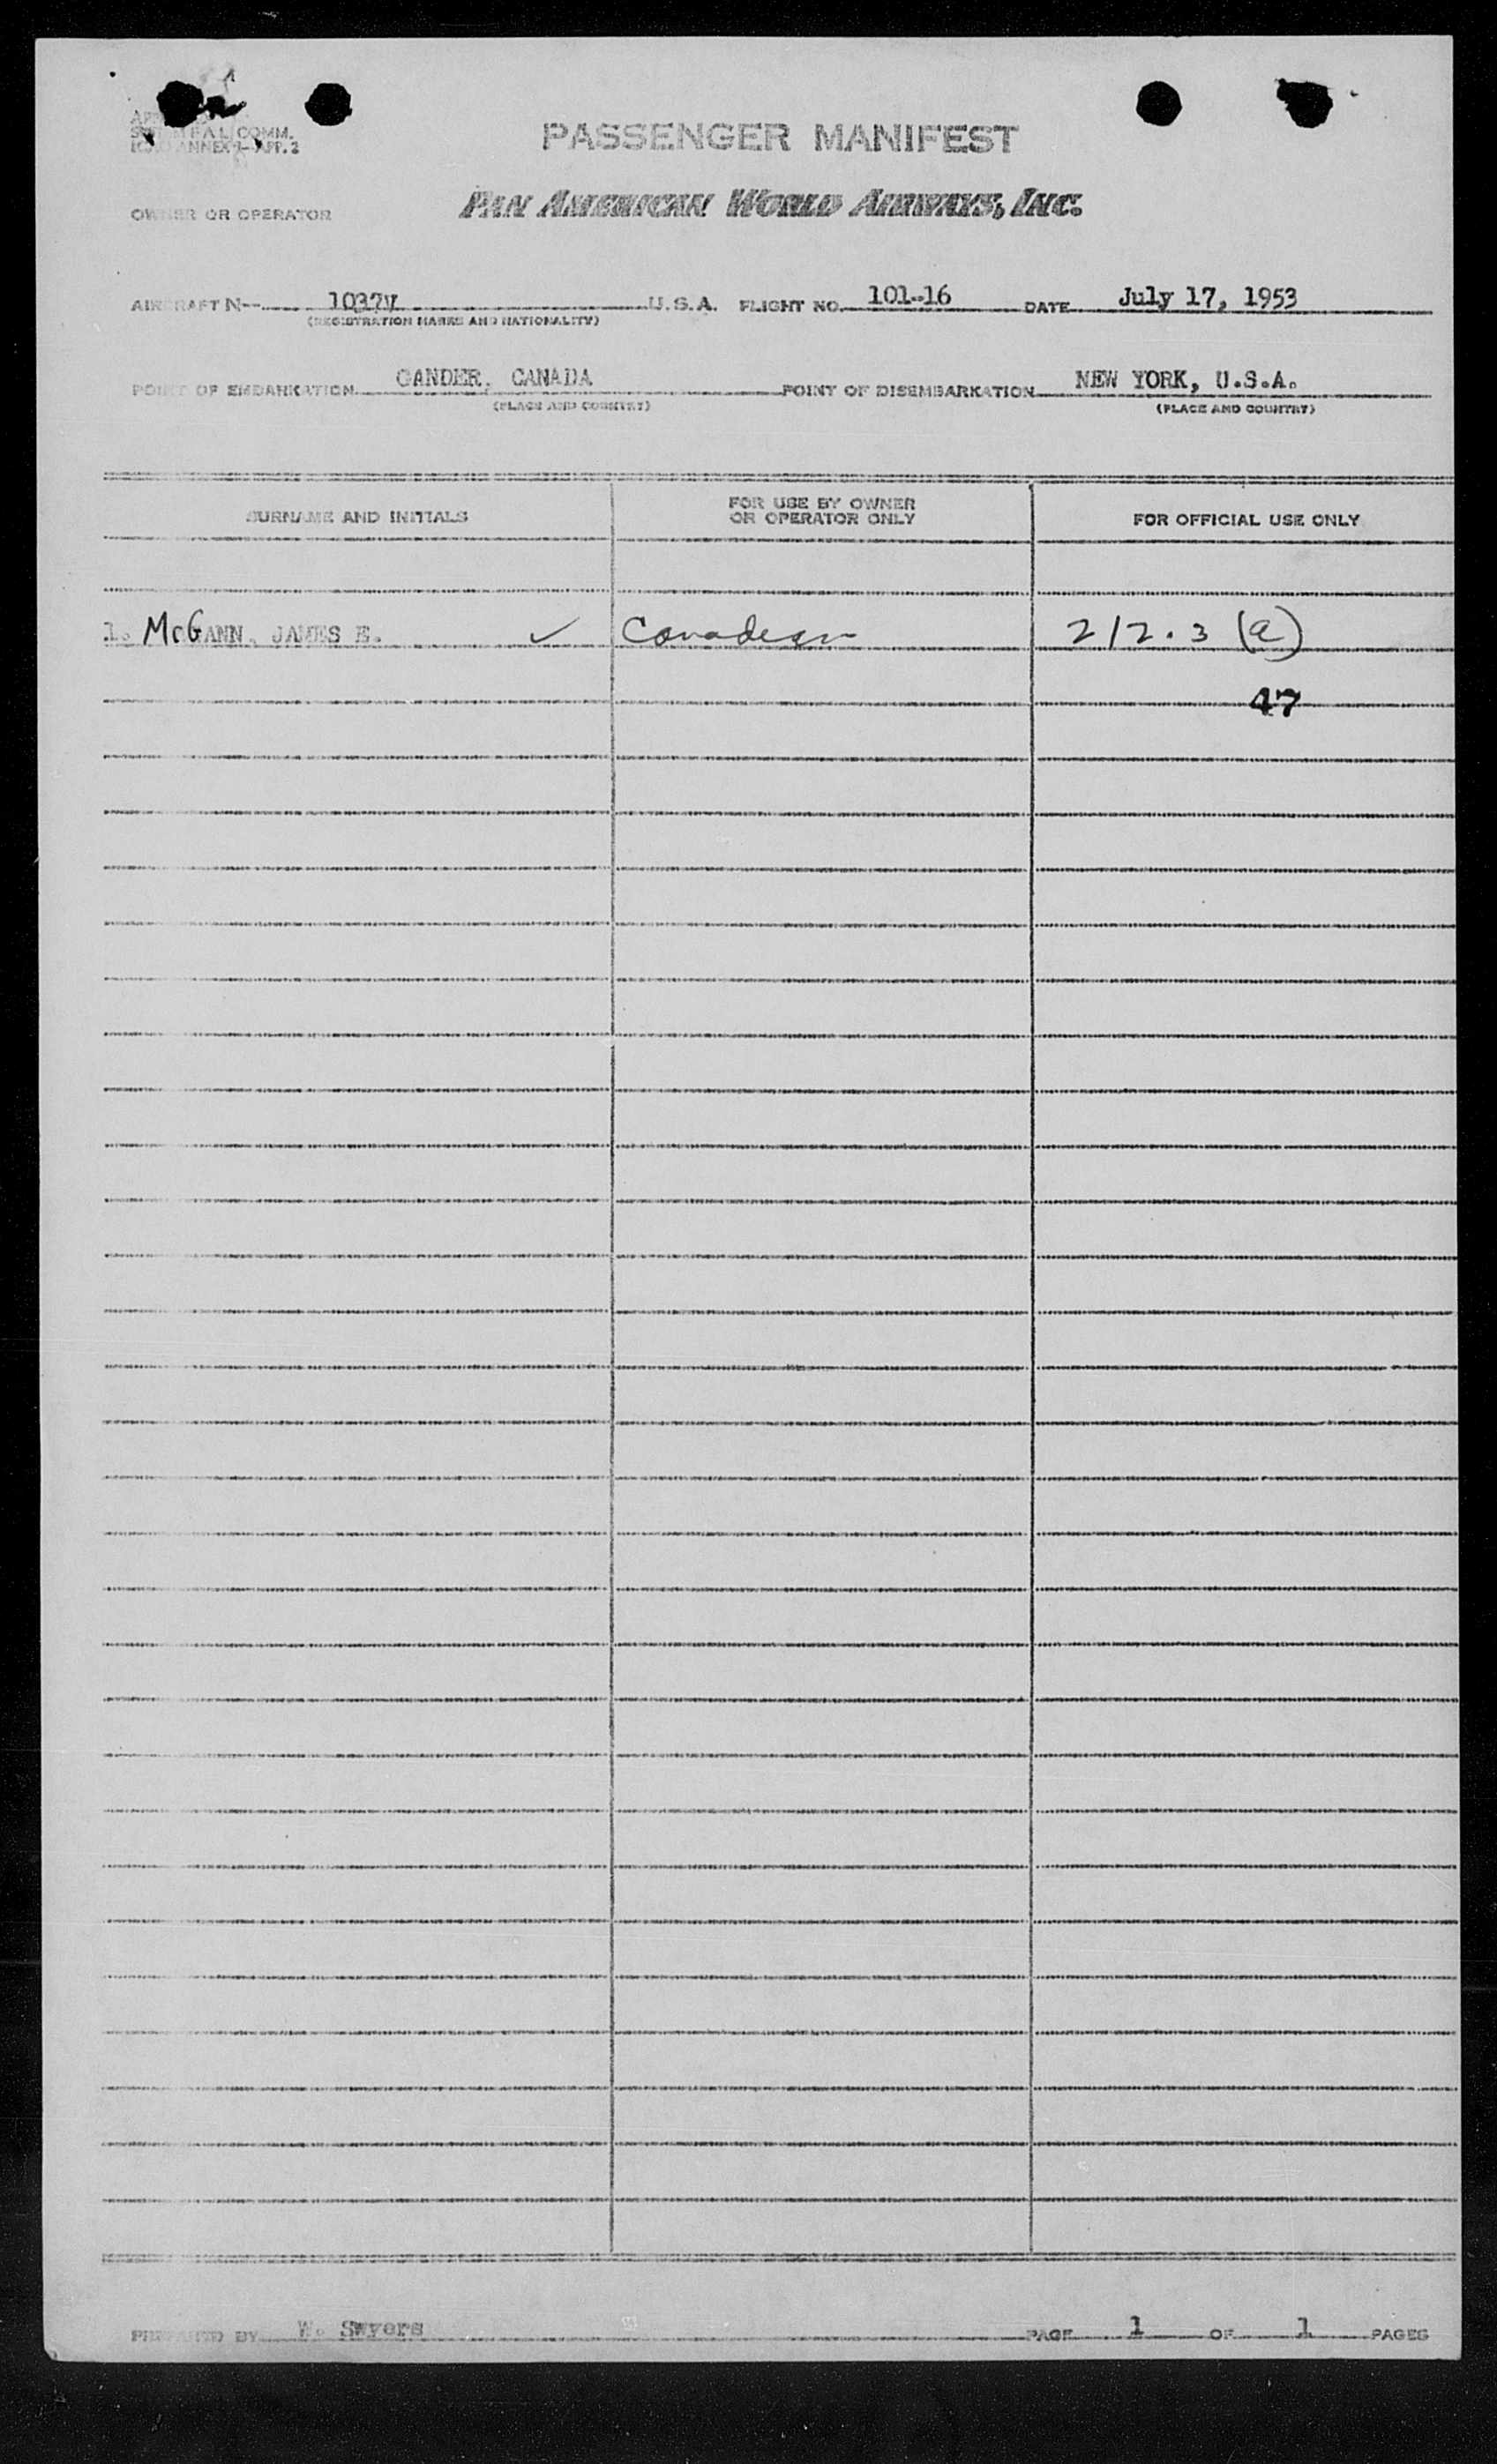 FAL COMM.
ANNEX 9-APP. 2
PASSENGER MANIFEST
OWNER OR OPERATOR PAN AMERICAN WORLD AIRWAYS, INC.
AIRCRAFT N-- 1037V U.S.A. FLIGHT NO. 101-16 DATE July 17, 1953
(REGISTRATION MARKS AND NATIONALITY)
POINT OF EMBARKATION GANDER, CANADA POINT OF DISEMBARKATION NEW YORK, U.S.A.
(PLACE AND COUNTRY) (PLACE AND COUNTRY)
SURNAME AND INITIALS FOR USE BY OWNER OR OPERATOR ONLY FOR OFFICIAL USE ONLY
1. McGANN, JAMES E. ✓ Canadian 212.3 (a)
47
PREPARED BY W. Swyers PAGE 1 OF 1 PAGES